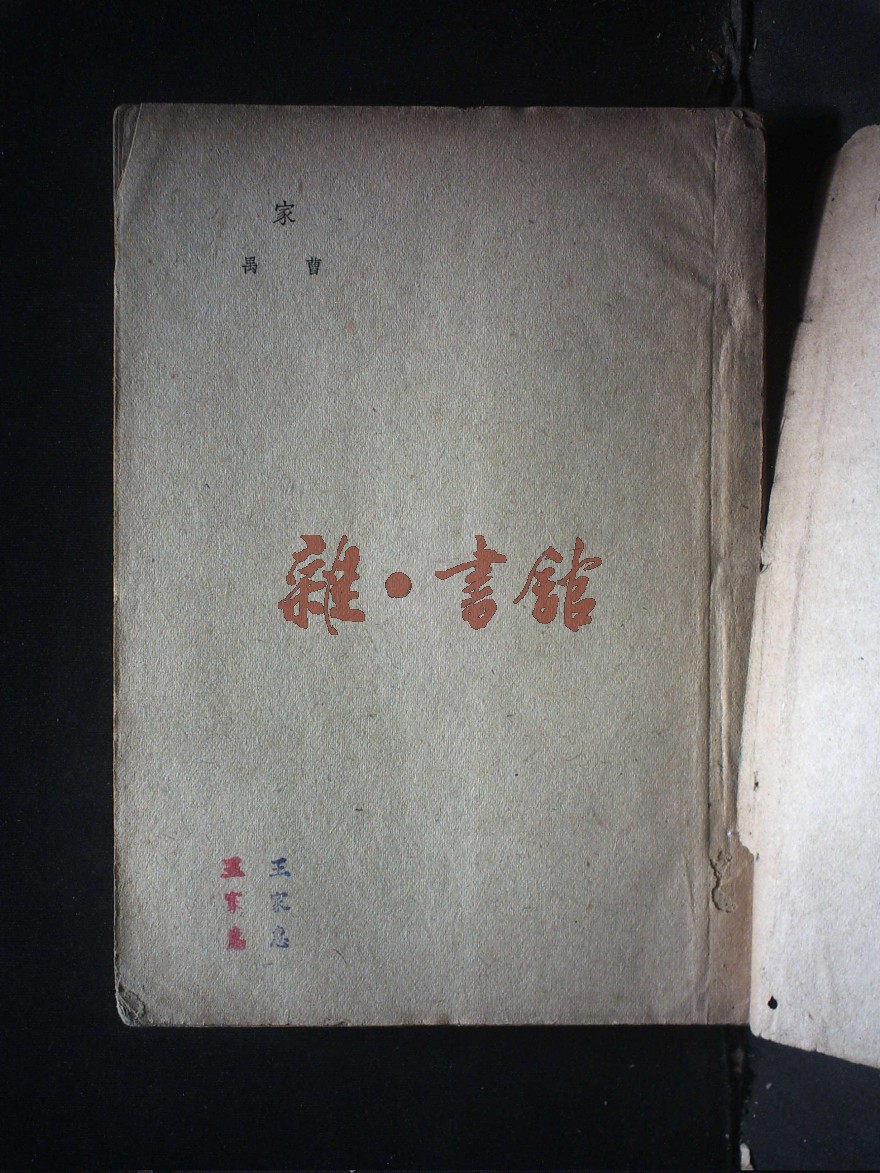 家
曹禺
雜·書館
王家忠
王家忠